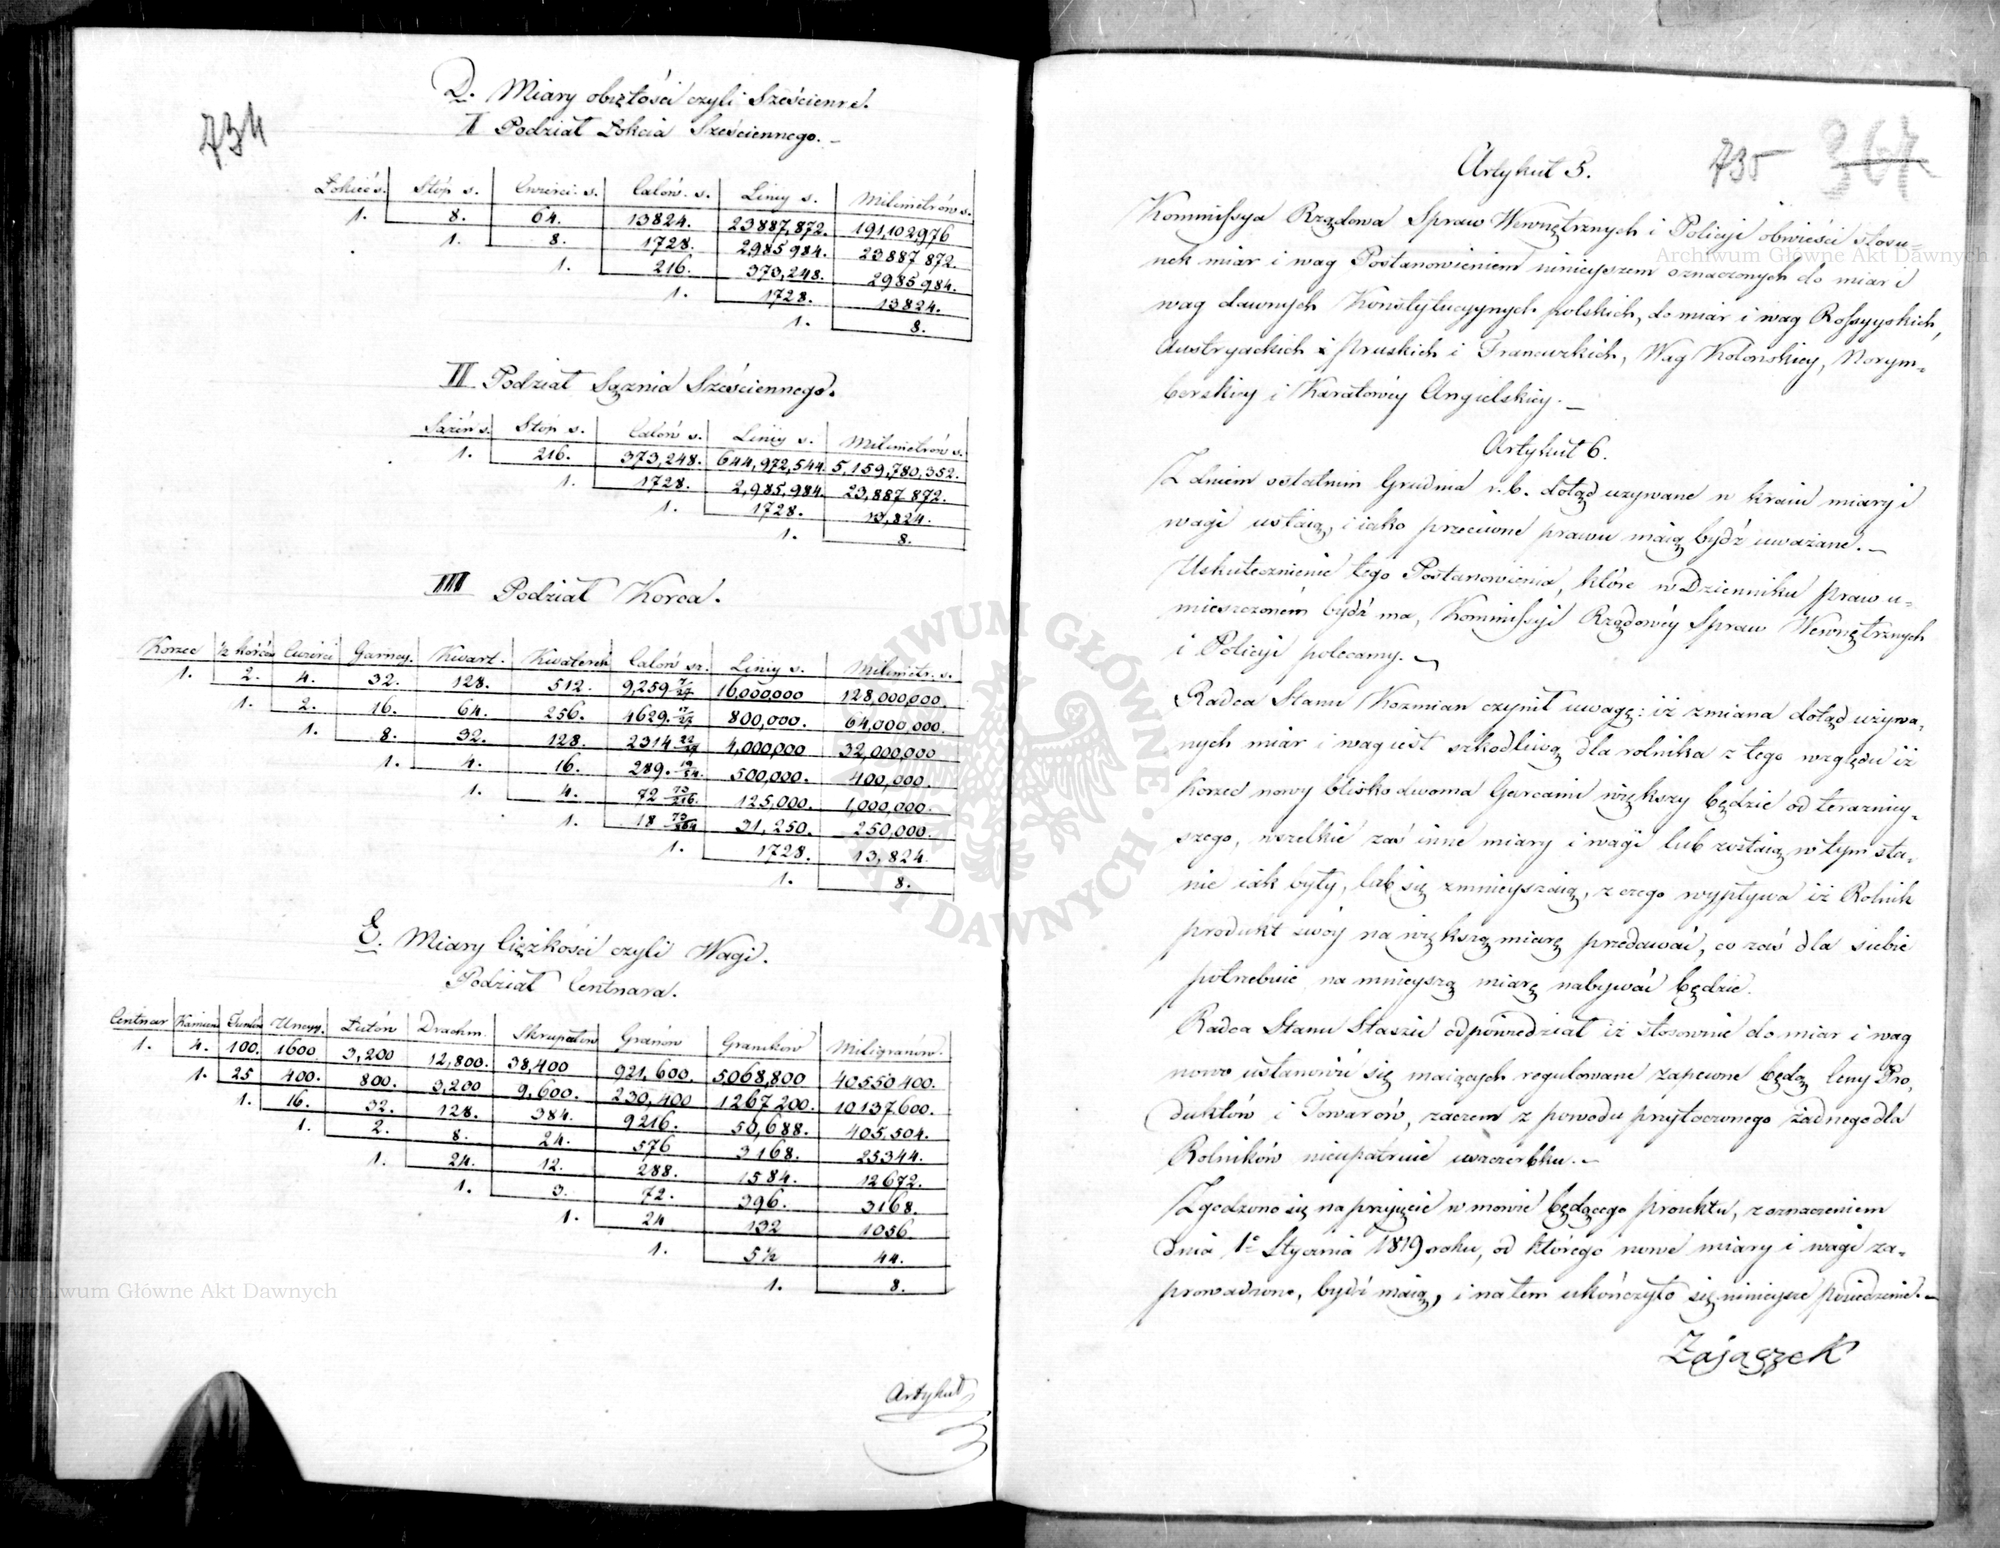 734
D. Miary obiętości czyli Sześcienne.
I Podział Łokcia Sześciennego. –
Łokieć s. Stóp s. Ćwierci. s. Calów. s. Liniy s. Milimetrów s.
1. 8. 64. 13824. 23887,872. 191,102,976
1. 8. 1728. 2985984. 23887872.
1. 216. 373,248. 2985984.
1. 1728. 13824.
1. 8.
II Podział Sążnia Sześciennego.
Sążeń s. Stóp s. Calów s. Liniy s. Milimetrów s.
1. 216. 373,248. 644,972,544 5,159,780,352.
1. 1728. 2,985,984. 23,887872.
1. 1728. 13,824.
1. 8.
III Podział Korca.
Korzec ½ korca Ćwierci Garncy. Kwart. Kwaterek Calów sz. Liniy s. Milimetr. s.
1. 2. 4. 32. 128. 512. 9,259 7/27 16,000,000 128,000,000.
1. 2. 16. 64. 256. 4629. 17/27 800,000. 64,000,000.
1. 8. 32. 128. 2314 22/27 4,000,000 32,000,000
1. 4. 16. 289. 19/54. 500,000. 400,000.
1. 4. 72 73/216. 125,000. 1,000,000.
1. 18 73/864 31,250. 250,000.
1. 1728. 13,824.
1. 8.
E. Miary Ciężkości czyli Wagi.
Podział Centnara.
Centnar Kamieni Funtów Uncyy. Łutów Drachm. Skrupułów Granów Graników Miligramów.
1. 4. 100. 1600 3,200 12,800. 38,400 921,600. 5,068,800 40550400.
1. 25 400. 800. 3,200 9,600. 230,400 1267200. 10137600.
1. 16. 32. 128. 384. 9216. 50,688. 405,504.
1. 2. 8. 24. 576 3168. 25344.
1. 24. 12. 288. 1584. 12672.
1. 3. 72. 396. 3168.
1. 24 132 1056.
1. 5½ 44.
1. 8.
Artykuł
735 367
Artykuł 5.
Kommissya Rządowa Spraw Wewnętrznych i Policyi obwieści stosu-
nek miar i wag Postanowieniem ninieyszem oznaczonych do miar i
wag dawnych Konstytucyynych polskich, do miar i wag Rossyyskich,
Austryackich i pruskich i Francuzkich, Wag Kolońskiey, Norym-
berskiey i Karatowéy Angielskiey. –
Artykuł 6.
Z dniem ostatnim Grudnia r. b. dotąd używane w kraiu miary i
wagi ustaią, i iako przeciwne prawu maią bydź uważane. –
Uskutecznienie tego Postanowienia, które w Dzienniku praw u-
mieszczoném bydź ma, Kommissyi Rządowéy Spraw Wewnętrznych
i Policyi polecamy. –
Radca Stanu Kozmian czynił uwagę: iż zmiana dotąd używa-
nych miar i wag iest szkodliwą dla rolnika z tego względu iż
Korzec nowy blisko dwoma Garcami większy będzie od teraźniey-
szego, wszelkie zaś inne miary i wagi lub zostaią w tym sta-
nie iak były, lub się zmnieyszaią, z czego wypływa iż Rolnik
produkt swóy na większą miarę przedawać, co zaś dla siebie
potrzebuie, na mnieyszą miarę nabywać będzie.
Radca Stanu Staszic odpowiedział iż stosownie do miar i wag
nowo ustanowić się maiących regulowane zapewne będą Ceny Pro-
duktów i Towarów, zaczem z powodu przytoczonego żadnego dla
Rolników nieupatruie uszczerbku. –
Zgodzono się na przyięcie w mowie będącego proiektu, z oznaczeniem
dnia 1o Stycznia 1819 roku, od którego nowe miary i wagi za-
prowadzone, bydź maią, i na tem ukończyło się ninieysze posiedzenie. –
Zajączek
Archiwum Główne Akt Dawnych
Archiwum Główne Akt Dawnych
ARCHIWUM GŁÓWNE · AKT DAWNYCH ·